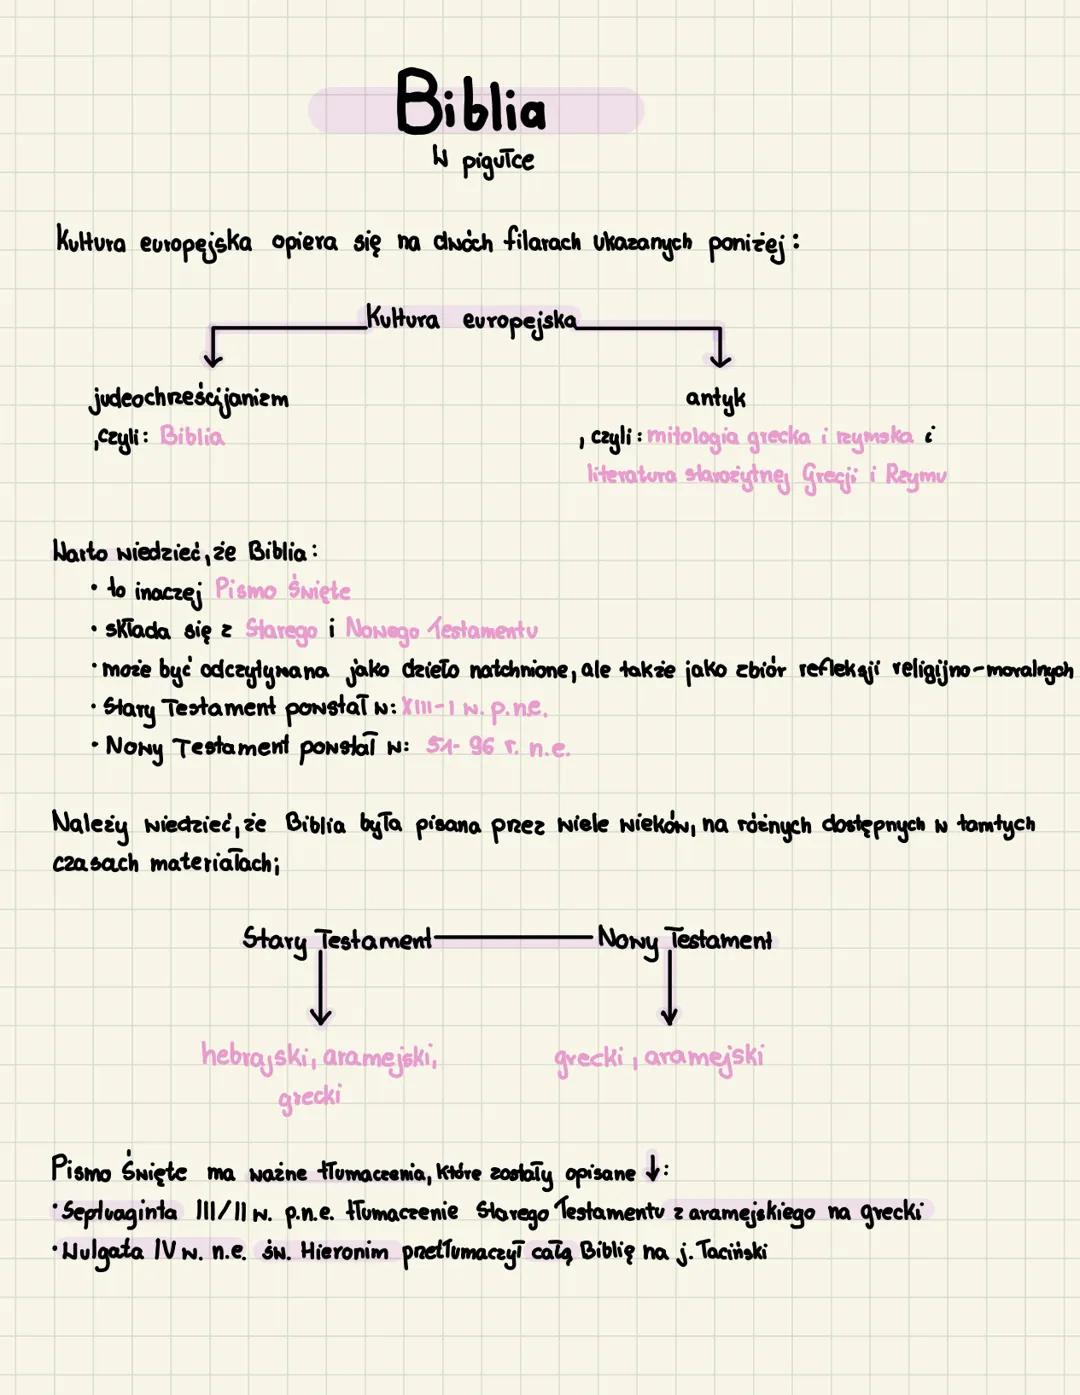 Biblia
w pigułce
Kultura europejska opiera się na dwóch filarach ukazanych poniżej:
Kultura europejska
judeochrześcijanizm
antyk
, czyli: Biblia
, czyli: mitologia grecka i rzymska i
literatura starożytnej Grecji i Rzymu
Warto wiedzieć, że Biblia:
• to inaczej Pismo Święte
• składa się z Starego i Nowego Testamentu
• może być odczytywana jako dzieło natchnione, ale także jako zbiór refleksji religijno-moralnych
• Stary Testament powstał w: XIII-I w. p.n.e.
• Nowy Testament powstał w: 51-96 r. n.e.
Należy wiedzieć, że Biblia była pisana przez wiele wieków, na różnych dostępnych w tamtych
czasach materiałach;
Stary Testament Nowy Testament
hebrajski, aramejski,
grecki
grecki, aramejski
Pismo Święte ma ważne tłumaczenia, które zostały opisane ↓:
• Septuaginta III/II w. p.n.e. tłumaczenie Starego Testamentu z aramejskiego na grecki
• Wulgata IV w. n.e. św. Hieronim przetłumaczył całą Biblię na j. łaciński